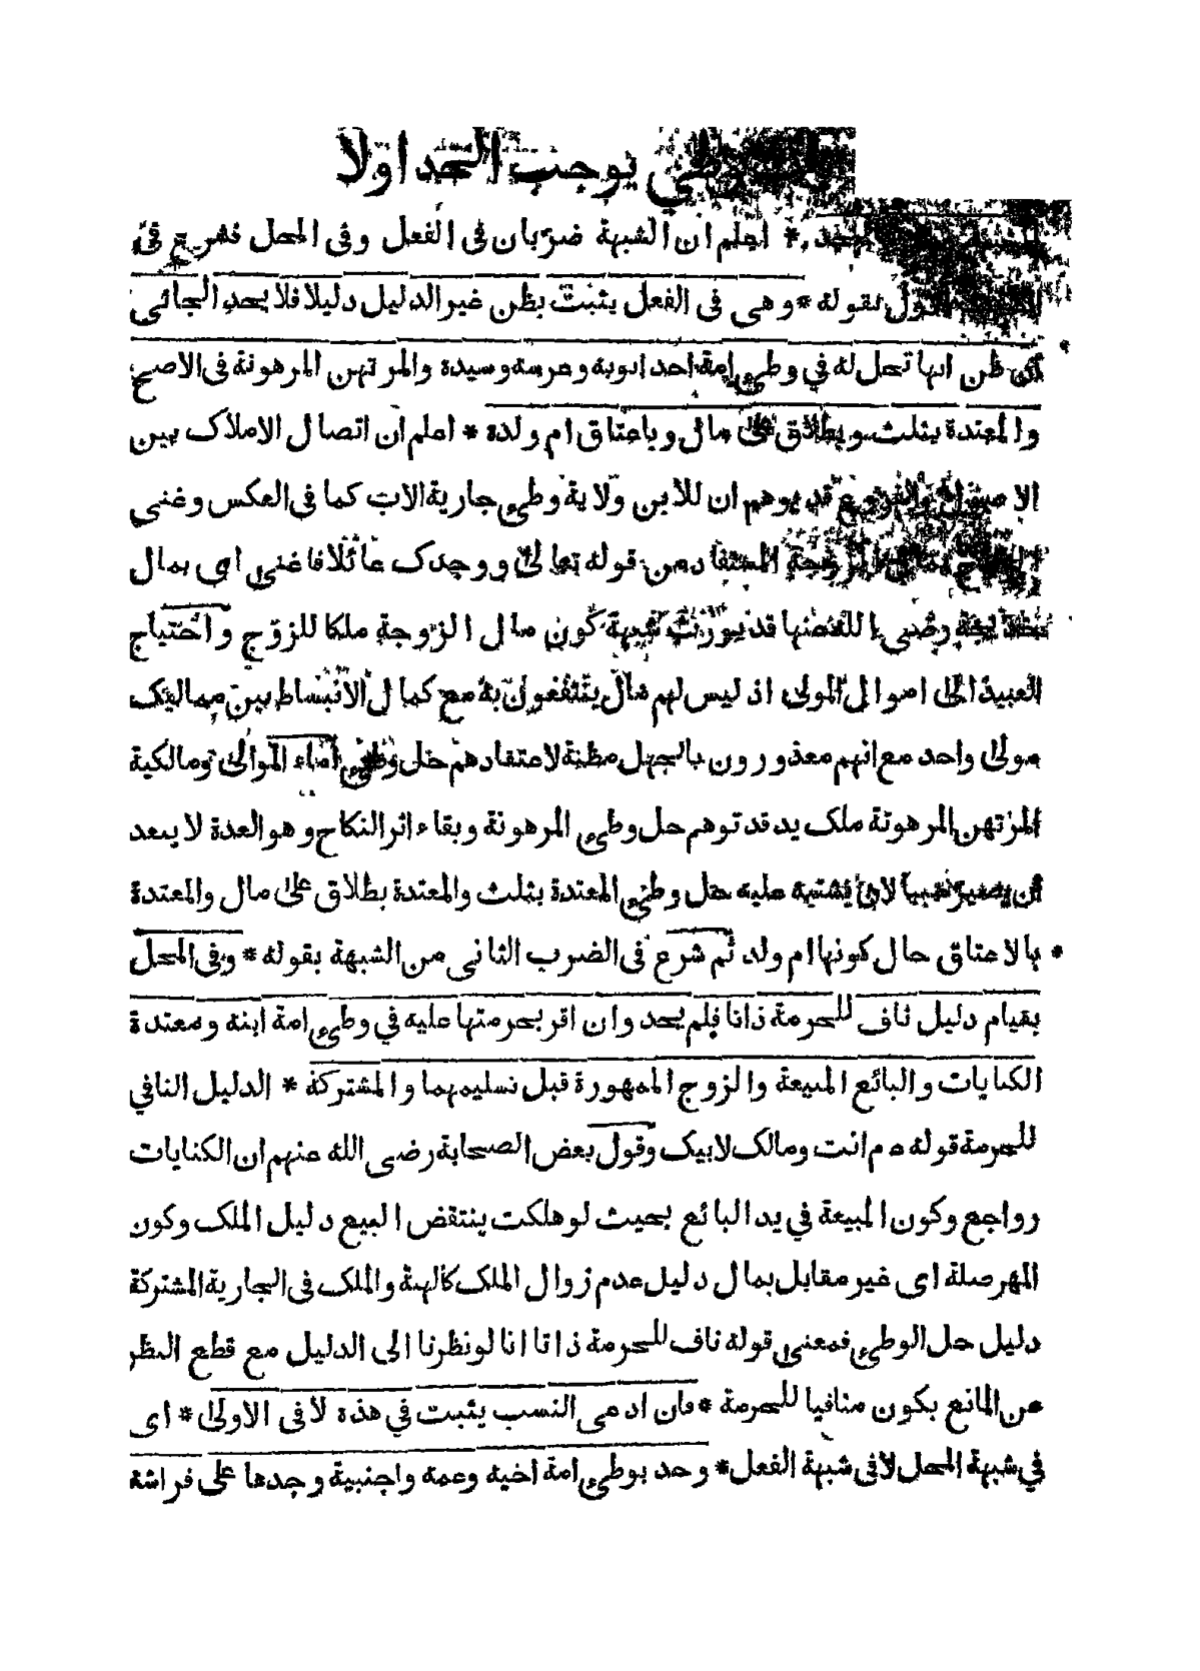 الوطي يوجب الحد اولا
الحد * اعلم ان الشبهة ضربان فى الفعل وفى المحل فشرع فى
الاول بقوله * وهى فى الفعل يثبت بظن غير الدليل دليلا فلا يحد الجانى
ان ظن انها تحل له في وطىء امة احد ابويه وعرسه وسيده والمرتهن المرهونة فى الاصح
والمعتدة بثلث وبطلاق على مال وباعتاق ام ولده * اعلم ان اتصال الاملاک بين
الاصول والفروع قد يوهم ان للابن ولاية وطىء جارية الاب كما فى العكس وغنى
الزوج بمال الزوجة المستفاد من قوله تعالى ووجدک عائلا فاغنى اى بمال
خديجة رضى الله عنها قد يورث شبهة كون مال الزوجة ملكا للزوج واحتياج
العبيد الى اموال المولى اذ ليس لهم مال ينتفعون به مع كمال الانبساط بين مماليک
مولى واحد مع انهم معذورون بالجهل مظنة لاعتقادهم حل وطىء اماء الموالى ومالكية
المرتهن المرهونة ملک يد قد توهم حل وطىء المرهونة وبقاء اثر النكاح وهو العدة لا يبعد
ان يصير سببا لان يشتبه عليه حل وطىء المعتدة بثلث والمعتدة بطلاق على مال والمعتدة
بالاعتاق حال كونها ام ولد ثم شرع فى الضرب الثانى من الشبهة بقوله * وفى المحل
بقيام دليل ناف للحرمة ذاتا فلم يحد وان اقر بحرمتها عليه في وطىء امة ابنه ومعتدة
الكنايات والبائع المبيعة والزوج الممهورة قبل تسليمهما والمشتركة * الدليل النافي
للحرمة قوله ع م انت ومالک لابيک وقول بعض الصحابة رضى الله عنهم ان الكنايات
رواجع وكون المبيعة في يد البائع بحيث لو هلكت ينتقض البيع دليل الملک وكون
المهر صلة اى غير مقابل بمال دليل عدم زوال الملک كالهبة والملک فى الجارية المشتركة
دليل حل الوطىء فمعنى قوله ناف للحرمة ذاتا انا لو نظرنا الى الدليل مع قطع النظر
عن المانع يكون منافيا للحرمة * فان ادعى النسب يثبت في هذه لا فى الاولى * اى
في شبهة المحل لا فى شبهة الفعل * وحد بوطىء امة اخيه وعمه واجنبية وجدها على فراشه